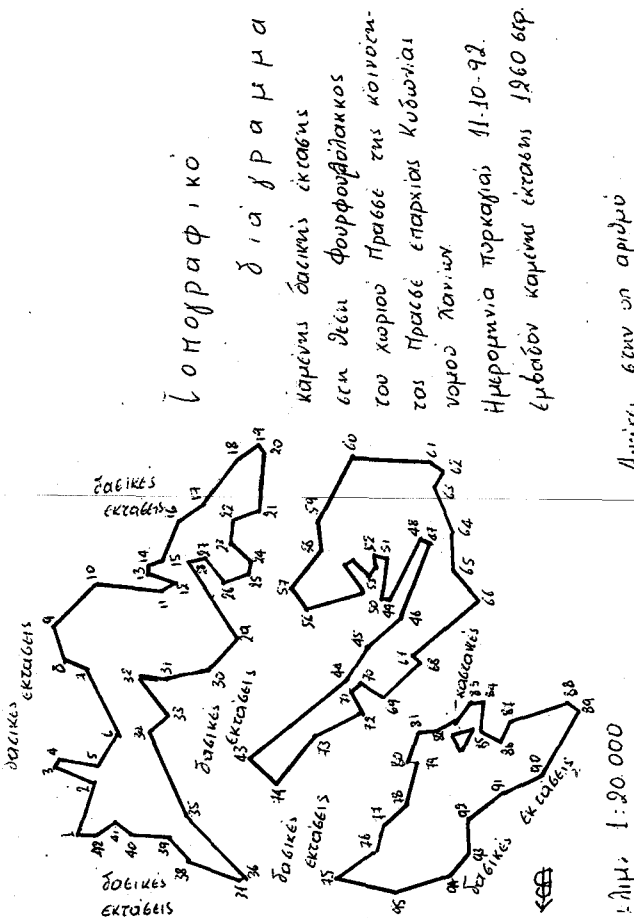 Τοπογραφικό
διάγραμμα
καμένης δασικής έκτασης
στη θέση Φουρφουρόλακκος
του χωριού Πρασσέ της κοινότη-
τος Πρασσέ επαρχίας Κυδωνίας
νομού Χανίων
Ημερομηνία πυρκαγιάς 11-10-92.
Εμβαδόν καμένης έκτασης 1260 στρ.
στην υπ αριθμό
δασικές εκτάσεις
δασικές
εκτάσεις
δασικές
εκτάσεις
δασικές
εκτάσεις
δασικές
εκτάσεις
καστανιές
δασικές
εκτάσεις
1:20.000
1
2
3
4
5
6
7
8
9
10
11
12
13
14
15
16
17
18
19
20
21
22
23
24
25
26
27
28
29
30
31
32
33
34
35
36
37
38
39
40
41
42
43
44
45
46
47
48
49
50
51
52
53
56
57
58
59
60
61
62
63
64
65
66
67
68
69
70
71
72
73
74
75
76
77
78
79
80
81
82
83
84
85
86
87
88
89
90
91
92
93
94
95